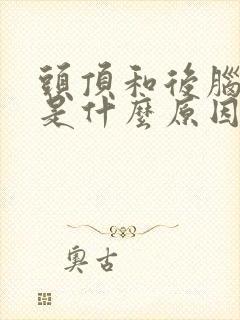 頭頂和後腦
是什麼原因
奧古